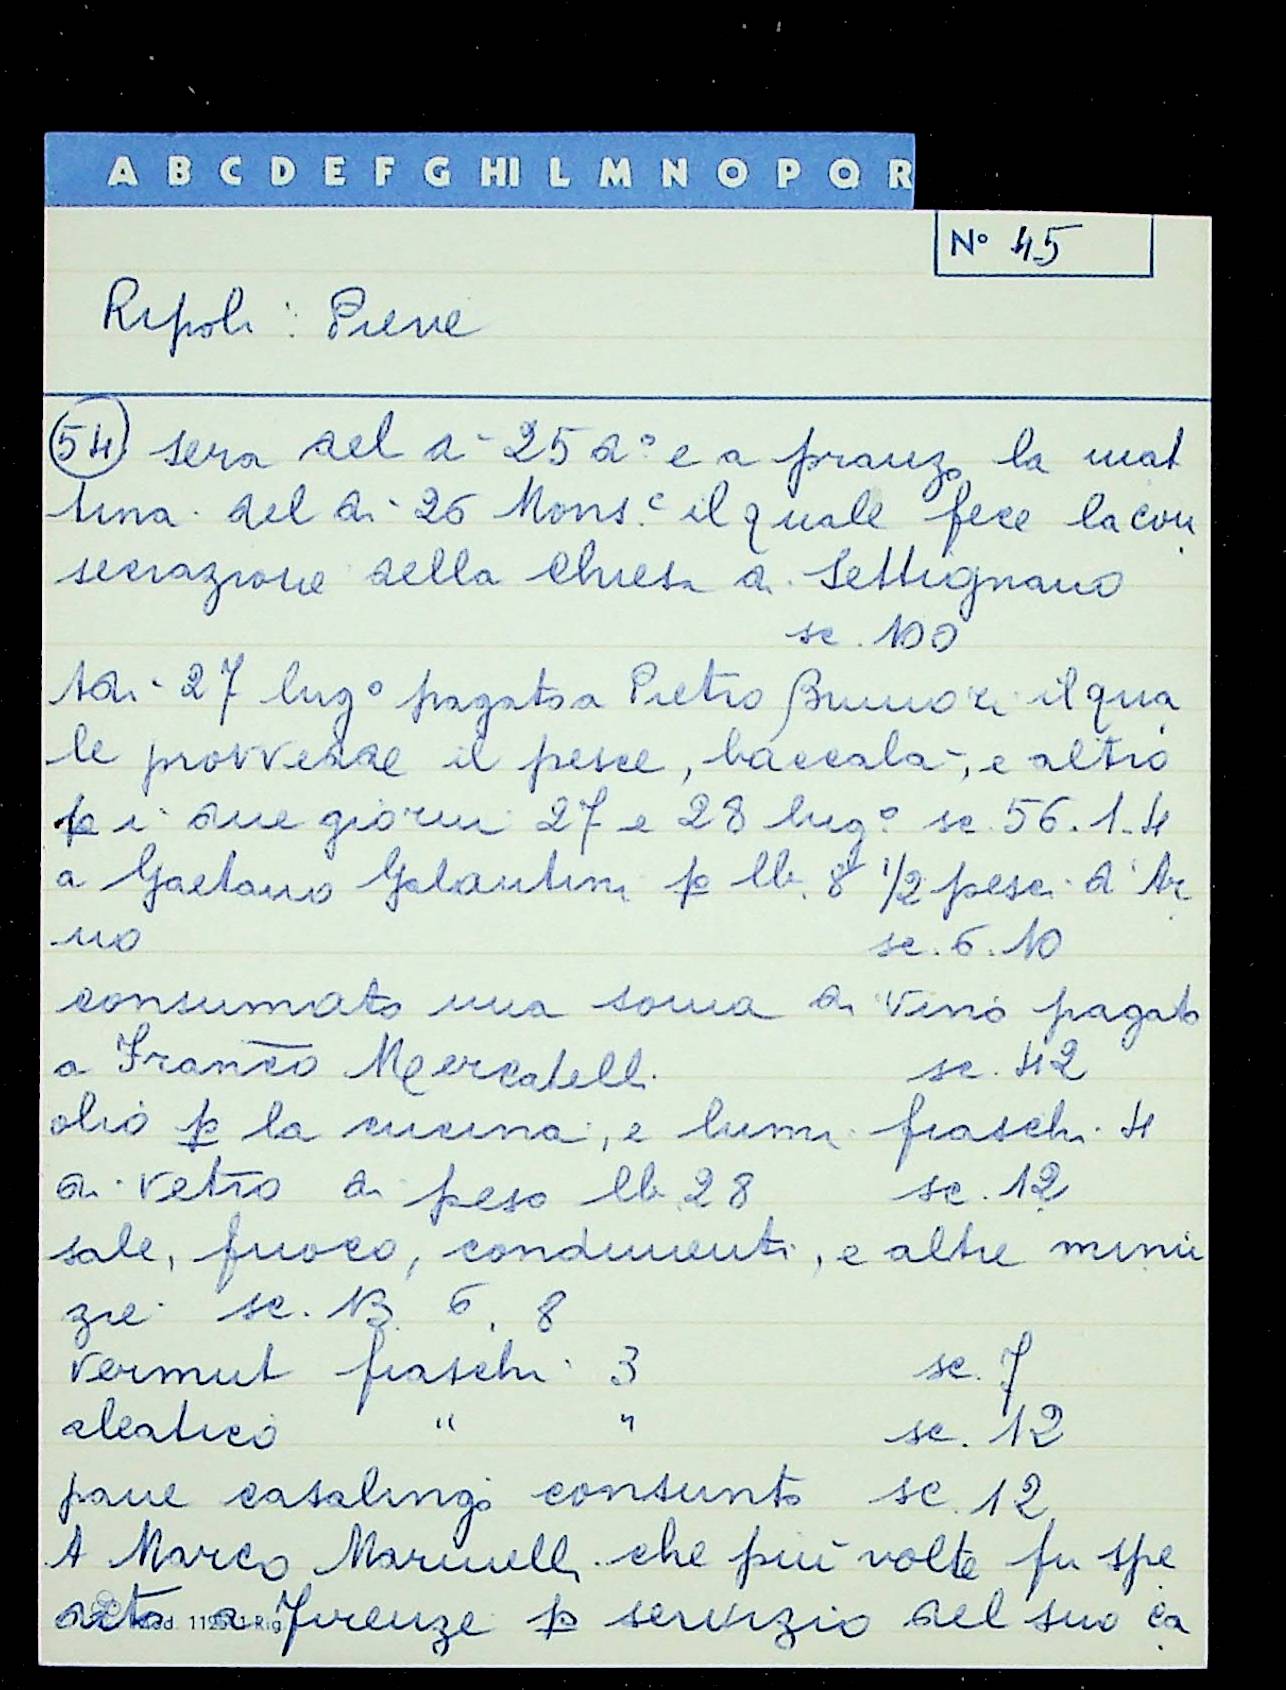 A B C D E F G HI L M N O P Q R
N° 45
Ripoli: Pieve
54 sera del dì 25 d° e a pranzo la mat
tina del dì 26 Mons.e il quale fece la con
secrazione della Chiesa di Settignano
sc. 100
A dì 27 lug° pagato a Pietro Brunori il qua
le provvedde il pesce, baccalà, e altro
p i due giorni 27 e 28 lug° sc. 56.1.4
a Gaetano Galantini p lb. 8 1/2 pesci d'Ar
no sc. 6.10
consumato una soma di vino pagato
a Franco Mercatelli sc. 42
olio p la cucina, e lumi fiaschi 4
di vetro di peso lb. 28 sc. 12
sale, fuoco, condimenti, e altre minu
zie sc. 13. 6. 8
vermut fiaschi 3 sc. 7
aleatico " " sc. 12
pane casalingo consunto sc. 12
A Marco Marinelli che più volte fu spe
dito a Firenze p servizio del suo ca